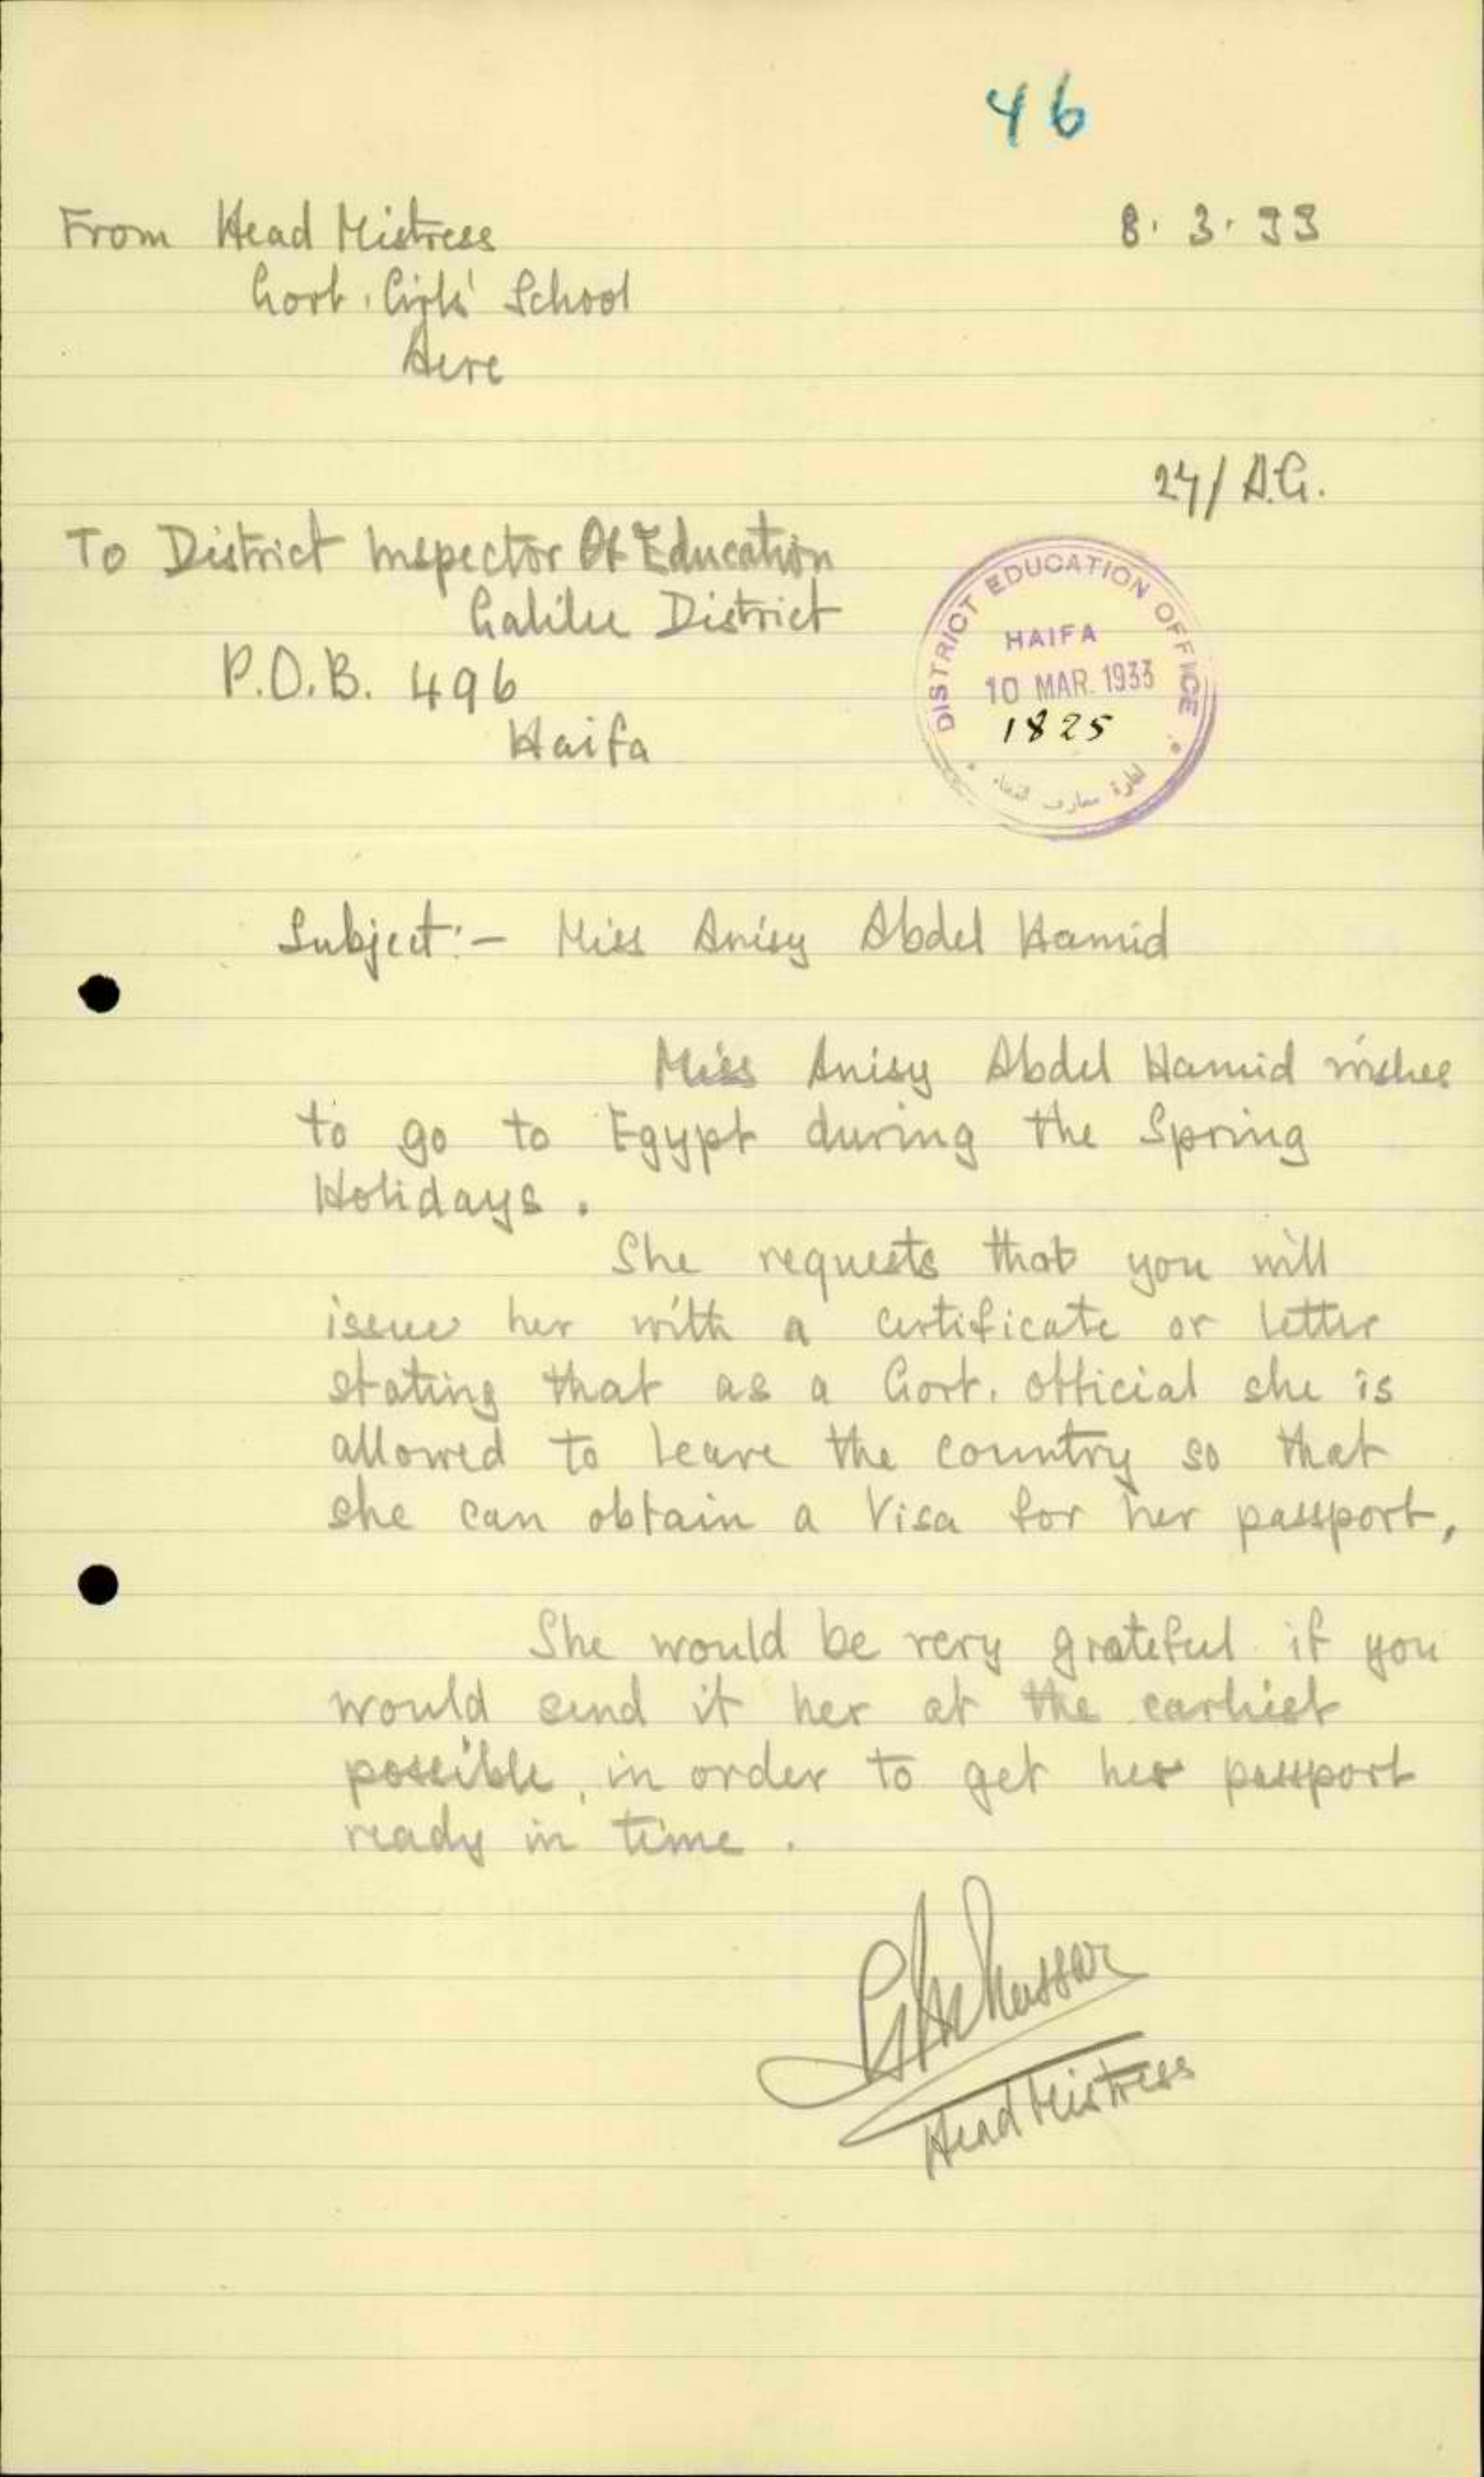 46
From Head Mistress
8. 3. 33
Govt. Girls' School
Acre
24/A.G.
To District Inspector Of Education
Galilee District
P.O.B. 496
Haifa
DISTRICT EDUCATION OFFICE
HAIFA
10 MAR. 1933
1825
Subject:- Miss Anisy Abdel Hamid
Miss Anisy Abdel Hamid wishes
to go to Egypt during the Spring
Holidays.
She requests that you will
issue her with a certificate or letter
stating that as a Govt. official she is
allowed to leave the country so that
she can obtain a Visa for her passport,
She would be very grateful if you
would send it her at the earliest
possible, in order to get her passport
ready in time.
Head Mistress